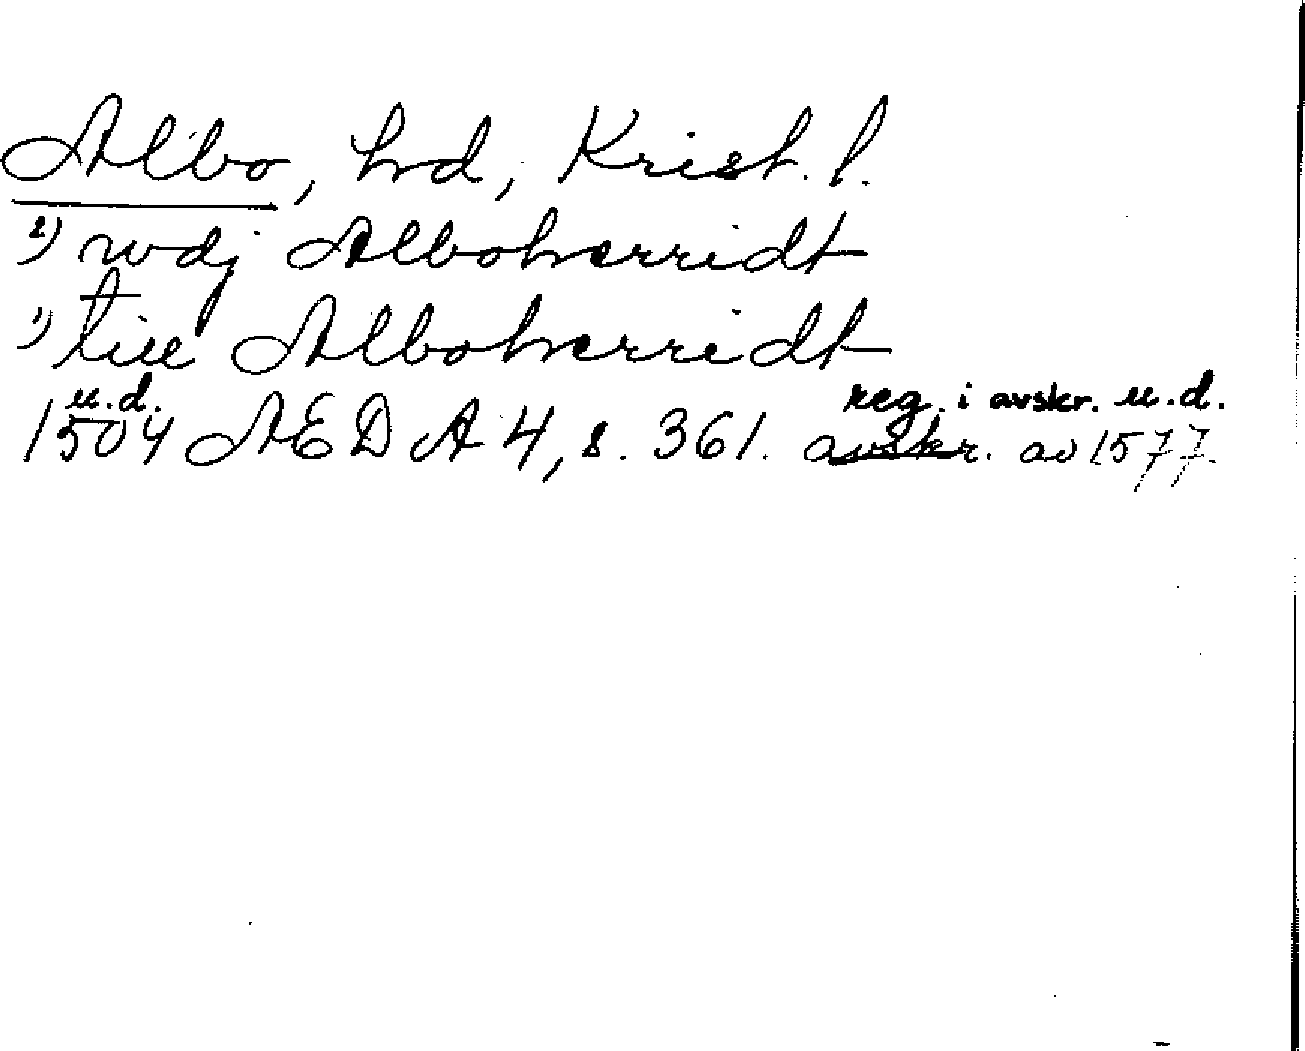 Albo, hd, Krist. l.
2) wdj Alboherridt
1) till Alboherridt
u.d. reg. i avskr. u.d.
1504 AEDA 4, s. 361. avskr. av 1577.